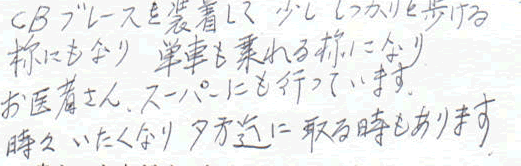 CBブレースを装着して少ししっかりと歩ける
様にもなり 単車も乗れる様になり
お医者さん、スーパーにも行っています。
時々いたくなり夕方迄に取る時もあります